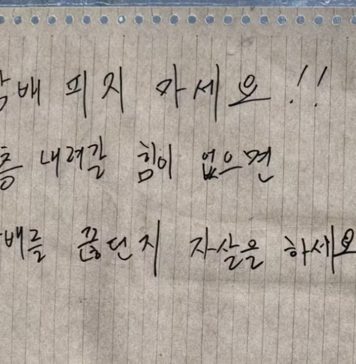 담배 피지 마세요!!
층 내려갈 힘이 없으면
담배를 끊던지 자살을 하세요